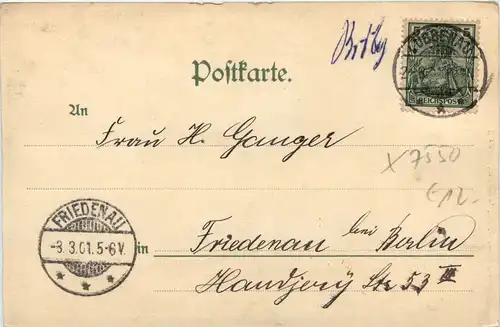 Postkarte.
LÜBBENAU
5
REICHSPOST
An
Frau H. Ganger
X 7550
€12.-
FRIEDENAU
-3.3.01.5-6V.
in
Friedenau bei Berlin
Handjery Str. 53 III